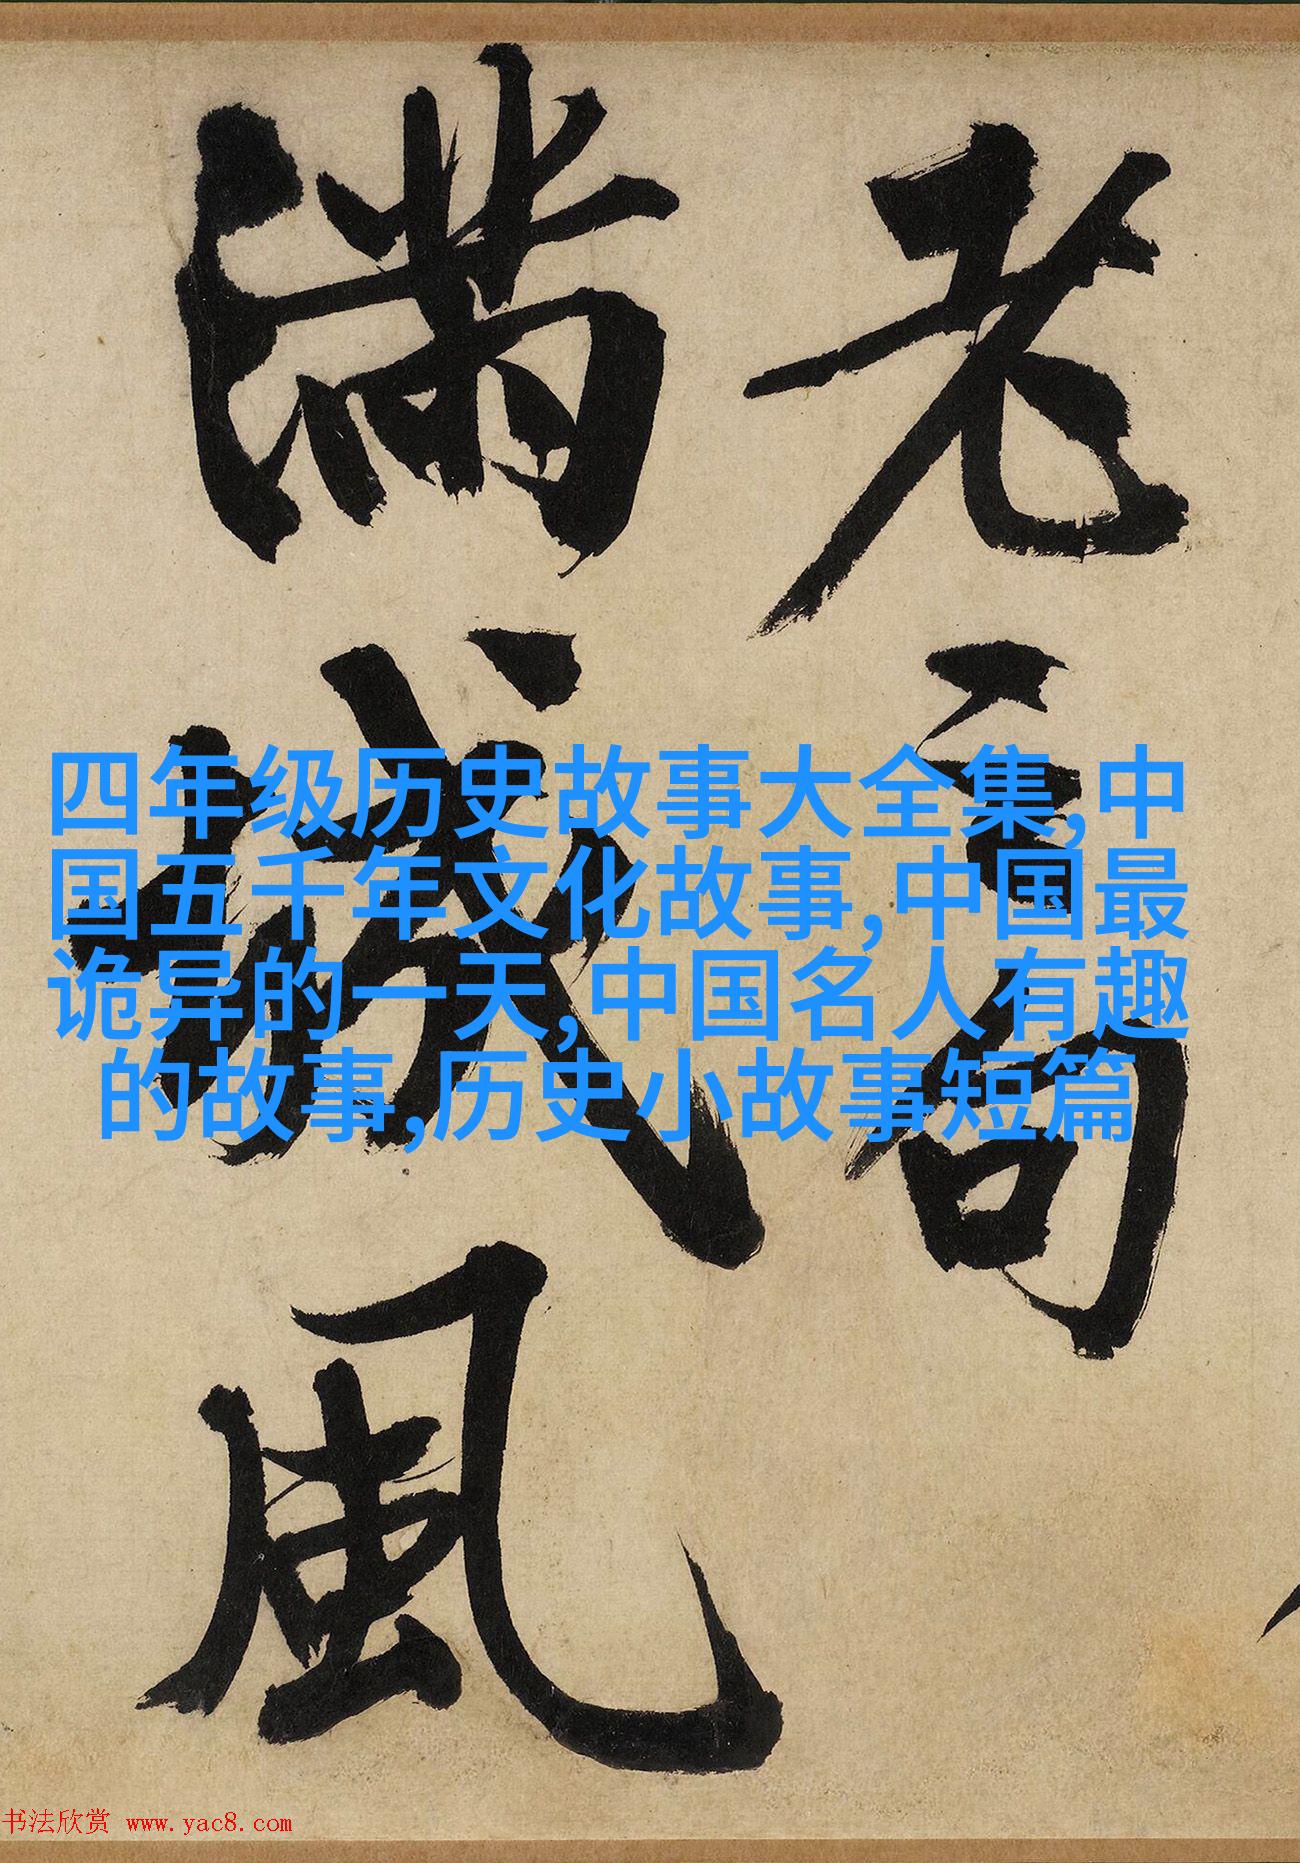 老句
滿城風
四年级历史故事大全集,中
国五千年文化故事,中国最
诡异的一天,中国名人有趣
的故事,历史小故事短篇
书法欣赏 www.yac8.com